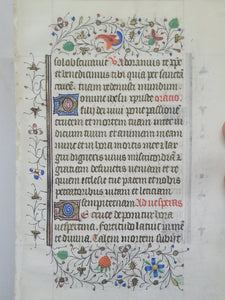 V Adoramus te xpe
et benedicimus tibi quia per sanctā
crucē tuam redemisti mundum
Domine iesu xpiste oratio
filii dei viui pone passionē
crucem et mortem tuam inter iu
dicium tuum et animam meam
nunc et in hora mortis mee et lar
giri digneris viuis misericordiā
defunctis veniam et requi
em ecclesie tue pacem et nobis
peccatoribus vitam et leticiam
sempiternam Ad vesperas
De cruce deponitur hora
vespertina fortitudo latuit in mēte
diuina Talem mortem subiit